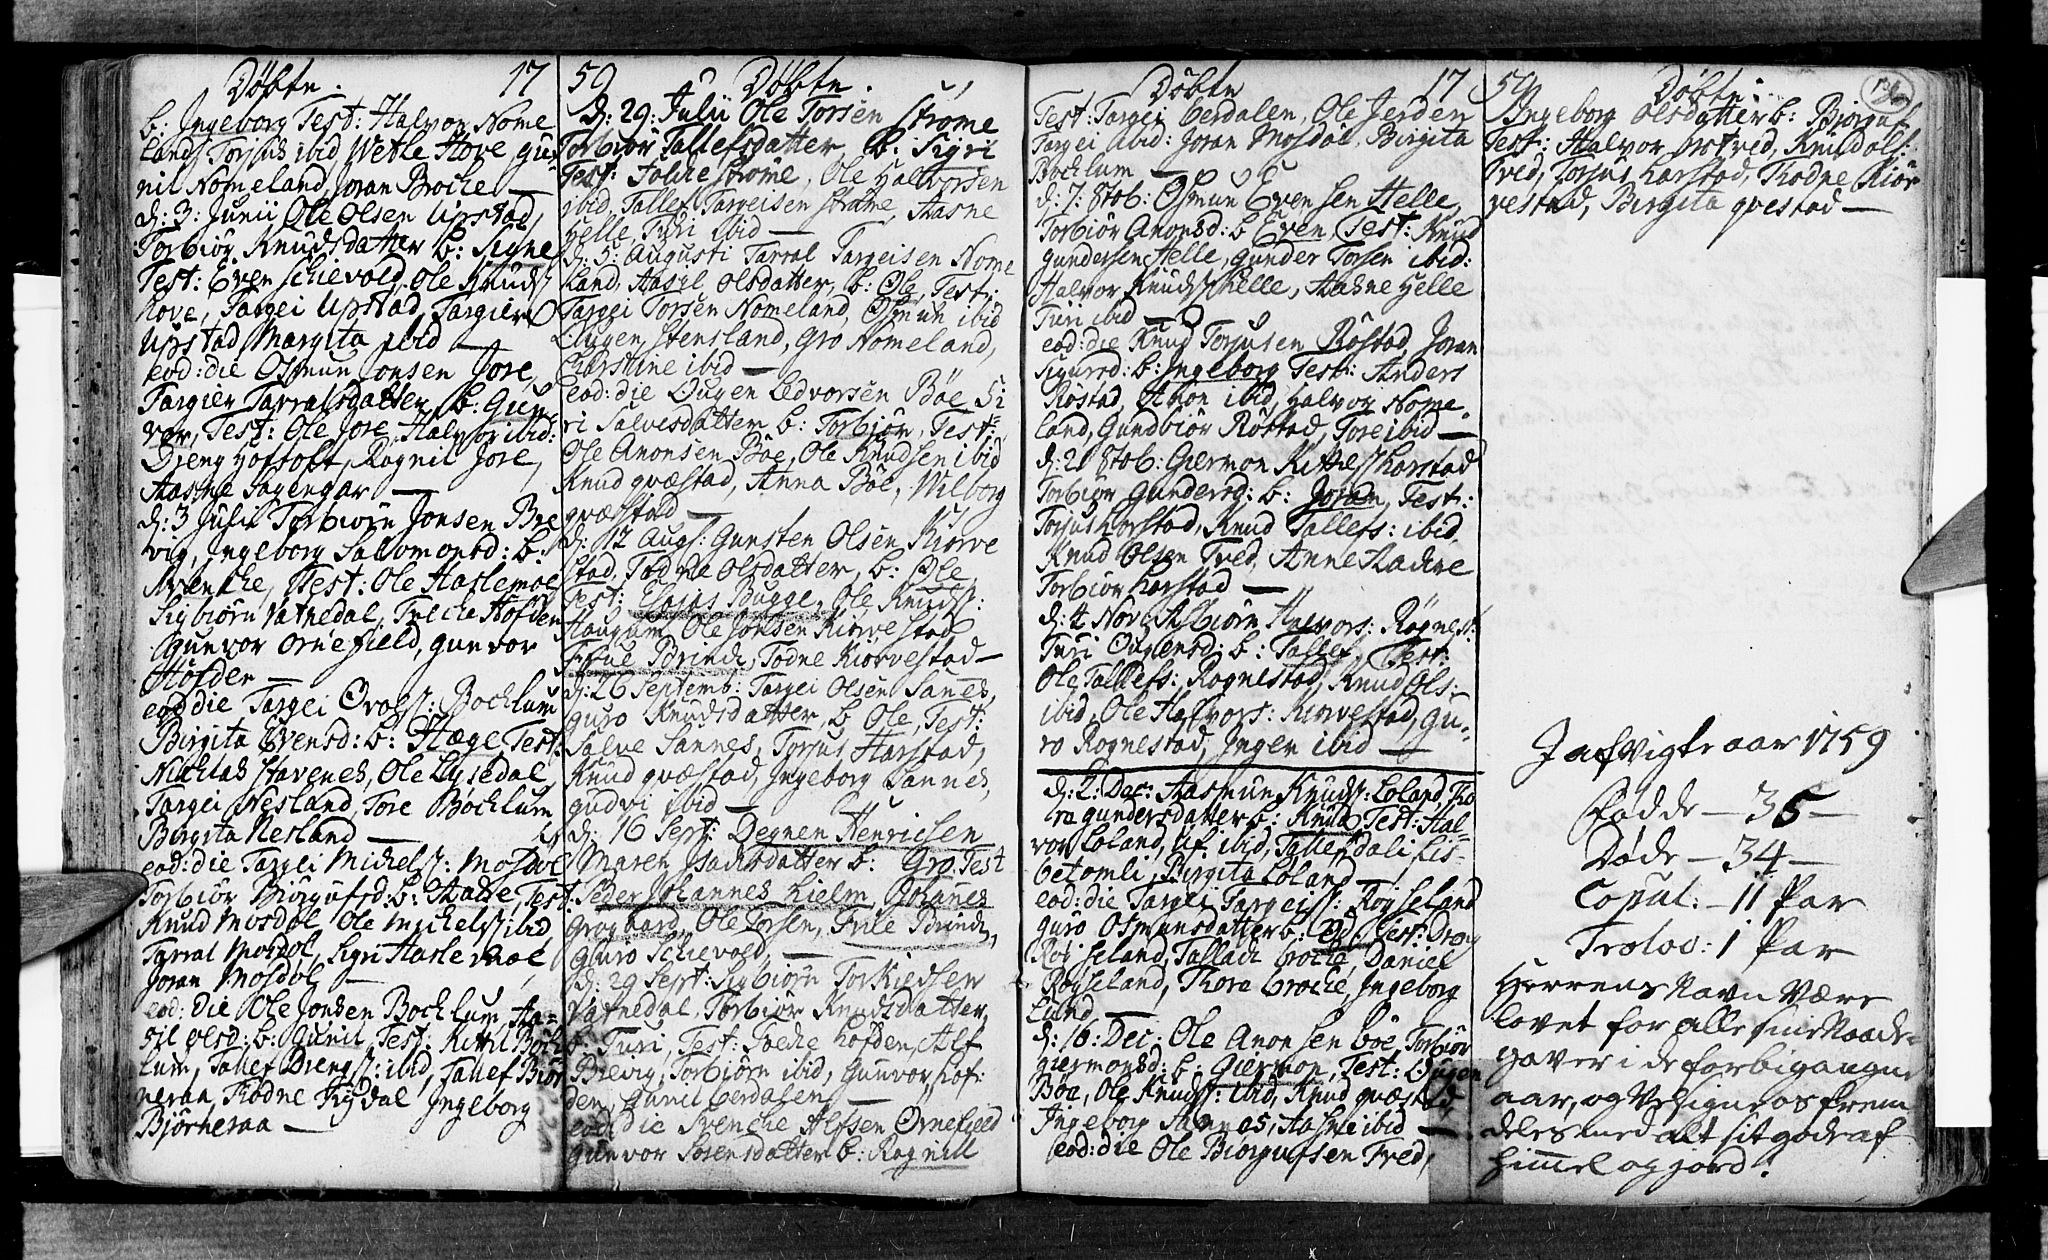 Döbte. 17
b: Ingeborg Test: Halvor Nome
land, Torjus ibid Wetle Hove, gu
nil Nomeland, Joran Broche —
d: 3: Junii Ole Olsen Upstad,
Torbiör Knudsdatter b: Signe
Test: Even Schievold, Ole Knuds
hove, Targei Upstad, Targier
Upstad, Margita ibid —
eod: die Osmun Jonsen Jore,
Targier Tarralsdatter b: Gun
vor, Test: Ole Jore, Halvor ibid:
Dreng Hoftoft, Ragnil Jore,
Aasne Sagengar —
d: 3 Julii Torbiörn Jonsen Bre
vig, Ingeborg Salomonsd: b:
Svenche, Test: Ole Haslemoe
Sigbiörn Vatnedal, Treche Hofden
Gunvor Ornefield, gunvor
Hofden —
eod die Targei Orols: Bochlum
Birgita Evensd: b: Hæge, Test:
Nichlas Stavenes, Ole Lysedal,
Targei Nesland, Tore Bochlum
Birgita Nesland —
eod: die Targei Michels: Mosdöl
Torbiör Biörgufsd: b: Aase, Test:
Knud Mosdöl, Ole Michels: ibid
Tarral Mosdöl, Sigri Haslemoe
Joran Mosdöl —
eod: die Ole Jonsen Bochlum, Aa=
sil Olsd: b: Gunil, Test: Kittil Boch
lum, Tallef Drengs: ibid, Tallef Biör
neraa, Thodne Rysdal, Ingeborg
Björneraa —
59 Döbte.
d: 29: Julii Ole Torsen Ströme
Torbiör Tallefsdatter b: Sigri
Test: Folche Ströme, Ole Halvorsen
ibid, Tallef Targeisen Ströme, Aasne
Helle, Turi ibid —
d: 5: Augusti Tarral Targeisen Nome
land, Aasil Olsdatter, b: Ole, Test:
Targei Torsen Nomeland, Osmun ibid
Ougen Stensland, Gro Nomeland,
Christine ibid —
eod: die Ougen Ledvorsen Böe Si
ri Salvesdatter b: Torbjör, Test:
Ole Anonsen Böe, Ole Knudsen ibid
Knud qvæstad, Anna Böe, Wilborg
qvæstad —
d: 12 Augs: Gunsten Olsen Kiörve
stad, Todne Olsdatter, b: Ole
Test: Elojus Bugge, Ole Knuds:
Haugum, Ole Jonsen Kiörvestad
Frue Brinch, Todne Kiörvestad —
d: 26 Septemb: Targei Olsen Sanes,
guro Knudsdatter, b. Ole, Test:
Salve Sannes, Torjus Harstad,
Knud qvæstad, Ingeborg Sannes,
gudvi ibid —
d: 16 Sept: Degnen Henricsen
Maren Isachsdatter b: Gro, Test
Peder Johannes Hielm, Johannes
Grogaard, Ole Torsen, Frue Brinch,
guro Schievold, —
d: 29 Sept: Sigbiörn Torkieldsen
Vatnedal, Torbiör Knudsdatter,
b: Turi, Test: Treche Hofden, Alf
Brevig, Torbiörn ibid, Gunvor Hof:
den, Gunil Berdalen —
eod: die Svenche Alfsen Ornefield
gunvor Sörensdatter b: Ragnill
Döbte 17
Test: Targei Berdalen, Ole Jerden
Targei ibid: Joran Mosdöl, Birgita
Bochlum —
d: 7: 8tob: Osmun Evensen Helle,
Torbiör Anonsd: b Even, Test: Knud
Gundersen Helle, Gunder Torsen ibid:
Halvor Knuds: Helle, Aasne Helle
Turi ibid —
eod: die Knud Torjusen Röstad, Joran
Sigursd: b: Ingeborg Test: Anders
Röstad, Anon ibid, Halvor Nome
land, Gundbiör Röstad, Tore ibid —
d: 21 8tob: Giermon Kittels: Harstad
Torbiör Gundersd: b: Joran, Test:
Torjus Harstad, Knud Tallefs: ibid,
Knud Olsen Tved, Anne Aachre
Torbiör Harstad —
d: 4 Nov: Asbiörn Halvors: Rögnes:
Turi Ougensd: b: Tallef, Test:
Ole Tallefs: Rognestad, Knud Ols:
ibid, Ole Halvors: Kirvestad, Gu:
ro Rognestad, Inger ibid —
d: 2: Dec: Aasmun Knuds: Loland, Tho
ra gundersdatter b: Knud, Test: Hal
vor Loland, Ulf ibid, Tallef Dali Lis=
betomli, Birgita Loland —
eod: die Targei Targeis: Röyseland
guro Osmunsdatter b: Od, Test: Dreng
Röyseland, Talladi Broche, Daniel
Röyseland, Thora Broche, Ingeborg
Lund —
d: 16: Dec: Ole Anonsen Böe, Torbiör
giermonsd: b: Giermon, Test: Ougen
Böe, Ole Knuds: ibid, Knud qvæstad,
Ingeborg Sannes, Aasne ibid —
eod: die Ole Biörgufsen Tred,
59 Döbte:
Ingeborg Olsdatter b: Bjorguf
Test: Halvor Tred, Knud Ols:
Tred, Torjus Harstad, Thodne Kiör
vestad, Birgita qvestad —
I afvigte aar 1759
Födde — 35 —
Döde — 34 —
Copul: — 11 Par
Trolov: 1 Par
Herrens Navn Være
lovet for alle sine Naade=
gaver i de forbigangne
aar, og Velsigne os frem
deles med alt sit gode af
Himmel og Jord.